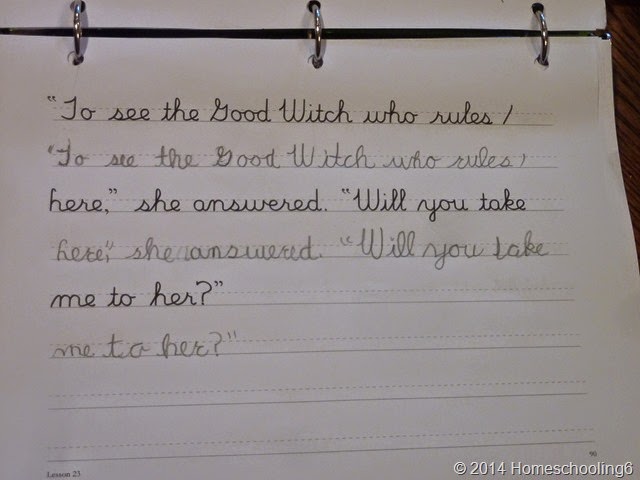 “To see the Good Witch who rules /
“To see the Good Witch who rules /
here,” she answered. “Will you take
here,” she answered. “Will you take
me to her?”
me to her?”
90
Lesson 23
© 2014 Homeschooling6